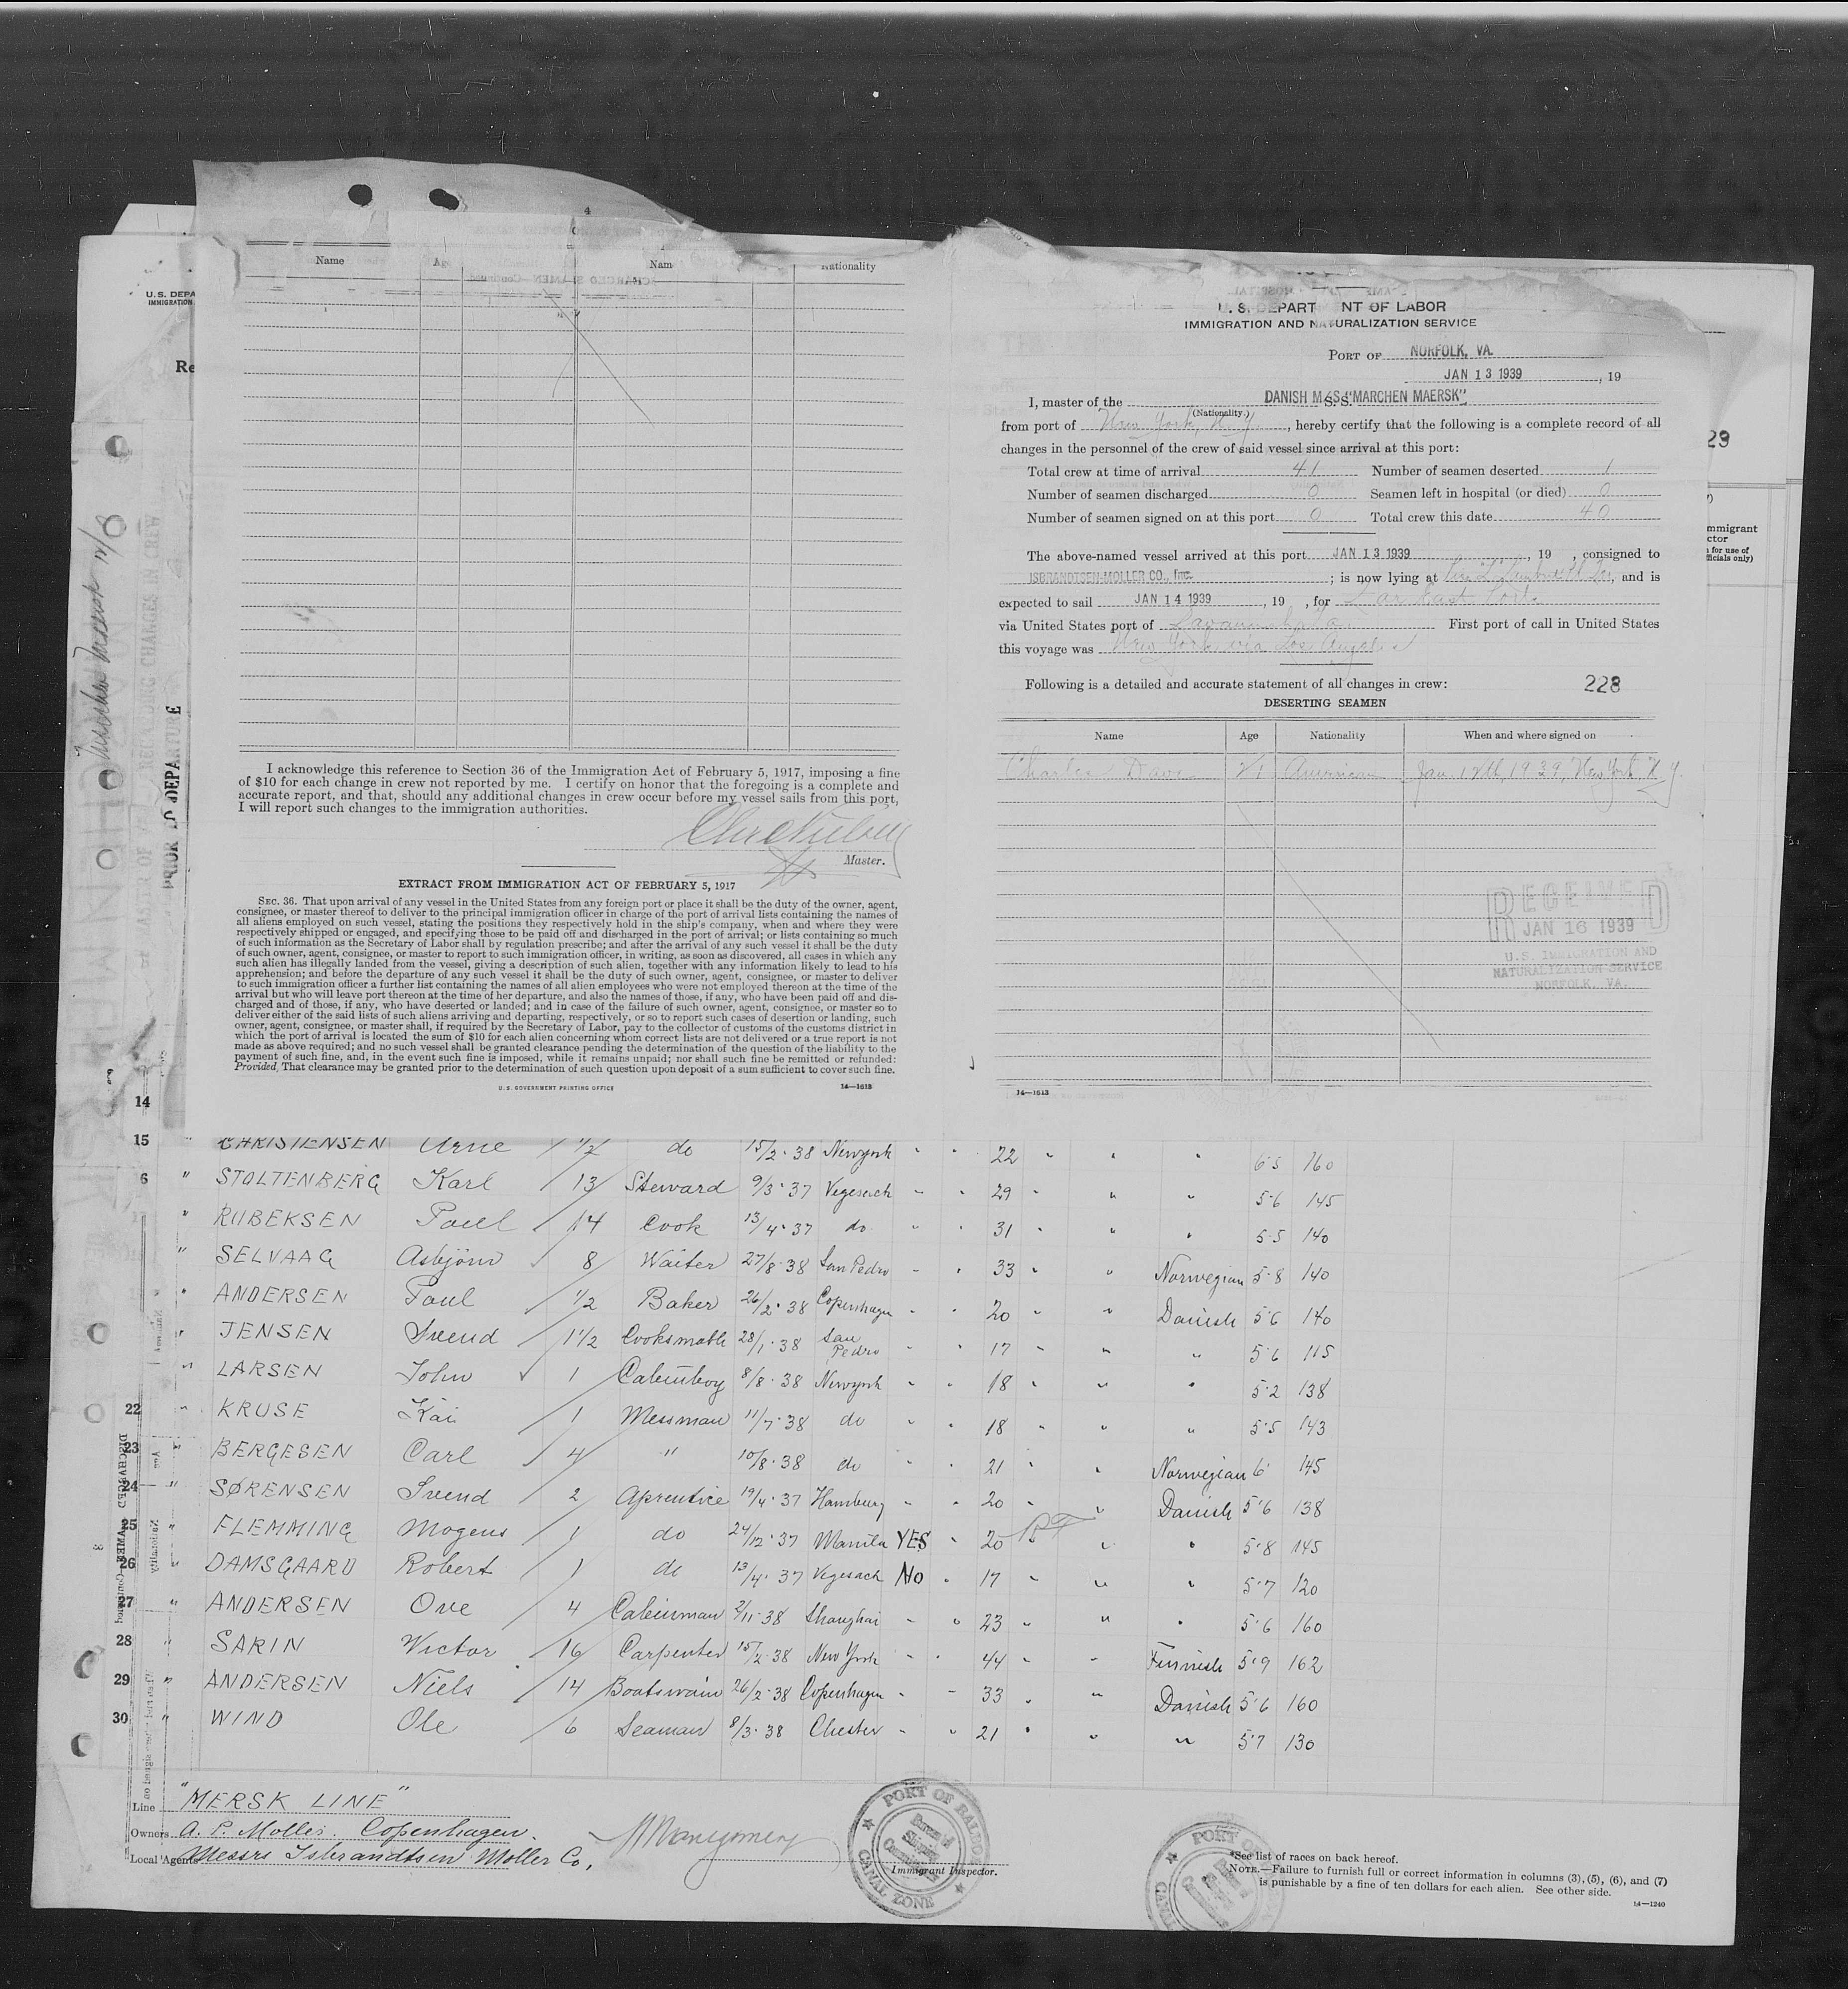 4
Name Age Nam Nationality
U.S. DEPA
IMMIGRATION
Re
PRIOR TO DEPARTURE
I acknowledge this reference to Section 36 of the Immigration Act of February 5, 1917, imposing a fine
of $10 for each change in crew not reported by me. I certify on honor that the foregoing is a complete and
accurate report, and that, should any additional changes in crew occur before my vessel sails from this port,
I will report such changes to the immigration authorities.
Master.
EXTRACT FROM IMMIGRATION ACT OF FEBRUARY 5, 1917
SEC. 36. That upon arrival of any vessel in the United States from any foreign port or place it shall be the duty of the owner, agent,
consignee, or master thereof to deliver to the principal immigration officer in charge of the port of arrival lists containing the names of
all aliens employed on such vessel, stating the positions they respectively hold in the ship's company, when and where they were
respectively shipped or engaged, and specifying those to be paid off and discharged in the port of arrival; or lists containing so much
of such information as the Secretary of Labor shall by regulation prescribe; and after the arrival of any such vessel it shall be the duty
of such owner, agent, consignee, or master to report to such immigration officer, in writing, as soon as discovered, all cases in which any
such alien has illegally landed from the vessel, giving a description of such alien, together with any information likely to lead to his
apprehension; and before the departure of any such vessel it shall be the duty of such owner, agent, consignee, or master to deliver
to such immigration officer a further list containing the names of all alien employees who were not employed thereon at the time of the
arrival but who will leave port thereon at the time of her departure, and also the names of those, if any, who have been paid off and dis-
charged and of those, if any, who have deserted or landed; and in case of the failure of such owner, agent, consignee, or master so to
deliver either of the said lists of such aliens arriving and departing, respectively, or so to report such cases of desertion or landing, such
owner, agent, consignee, or master shall, if required by the Secretary of Labor, pay to the collector of customs of the customs district in
which the port of arrival is located the sum of $10 for each alien concerning whom correct lists are not delivered or a true report is not
made as above required; and no such vessel shall be granted clearance pending the determination of the question of the liability to the
payment of such fine, and, in the event such fine is imposed, while it remains unpaid; nor shall such fine be remitted or refunded:
Provided, That clearance may be granted prior to the determination of such question upon deposit of a sum sufficient to cover such fine.
U. S. GOVERNMENT PRINTING OFFICE 14—1613
U. S. DEPART NT OF LABOR
IMMIGRATION AND NATURALIZATION SERVICE
PORT OF NORFOLK, VA.
JAN 13 1939, 19
I, master of the DANISH M.S. S.S. "MARCHEN MAERSK"
(Nationality.)
from port of New York, N.Y., hereby certify that the following is a complete record of all
changes in the personnel of the crew of said vessel since arrival at this port:
Total crew at time of arrival 41 Number of seamen deserted 1
Number of seamen discharged 0 Seamen left in hospital (or died) 0
Number of seamen signed on at this port 0 Total crew this date 40
The above-named vessel arrived at this port JAN 13 1939, 19 , consigned to
ISBRANDTSEN-MOLLER CO., Inc. ; is now lying at , and is
expected to sail JAN 14 1939, 19 , for Far East Ports
via United States port of Savannah Ga. First port of call in United States
this voyage was New York via Los Angeles
Following is a detailed and accurate statement of all changes in crew: 228
DESERTING SEAMEN
Name Age Nationality When and where signed on
Charles Davis 21 American Jan. 12th, 1939, New York, N.Y.
RECEIVED
JAN 16 1939
U.S. IMMIGRATION AND
NATURALIZATION SERVICE
NORFOLK, VA.
14—1613
29
mmigrant
ctor
for use of
ficials only)
14
15 CHRISTENSEN Arne 1/2 do 15/2·38 Newyork " " 22 " " " 5·5 160
6 " STOLTENBERG Karl 13 Steward 9/3·37 Vegesach " " 29 " " " 5·6 145
" RUBEKSEN Poul 14 Cook 13/4·37 do " " 31 " " " 5·5 140
" SELVAAG Asbjörn 8 Waiter 27/8·38 San Pedro " " 33 " " Norwegian 5·8 140
" ANDERSEN Poul 1/2 Baker 26/2·38 Copenhagen " " 20 " " Danish 5·6 140
" JENSEN Svend 1 1/2 Cooksmath 28/1·38 San Pedro " " 17 " " " 5·6 115
" LARSEN John 1 Cabinboy 8/8·38 Newyork " " 18 " " " 5·2 138
22 " KRUSE Kai 1 Messman 11/7·38 do " " 18 " " " 5·5 143
23 " BERGESEN Carl 4 " 10/8·38 do " " 21 " " Norwegian 6' 145
24 " SØRENSEN Svend 2 Aprentice 19/4·37 Hamburg " " 20 " " Danish 5'6 138
25 " FLEMMING Mogens 1 do 24/12·37 Manila YES " 20 " " " 5·8 145
26 " DAMSGAARD Robert 1 do 13/4·37 Vegesach No " 17 " " " 5'7 120
27 " ANDERSEN Ove 4 Cabinman 2/11·38 Shanghai " " 23 " " " 5·6 160
28 " SARIN Wictor 16 Carpenter 15/2·38 New York " " 44 " " Finnish 5'9 162
29 " ANDERSEN Niels 14 Boatswain 26/2·38 Copenhagen " " 33 " " Danish 5·6 160
30 " WIND Ole 6 Seaman 8/3·38 Chester " " 21 " " " 5'7 130
Line "MERSK LINE"
Owners A. P. Moller. Copenhagen.
Local Agents Messrs Isbrandtsen Moller Co.
Montgomery
Immigrant Inspector.
PORT OF BALBOA
CANAL ZONE
*See list of races on back hereof.
NOTE.—Failure to furnish full or correct information in columns (3), (5), (6), and (7)
is punishable by a fine of ten dollars for each alien. See other side.
14—1240